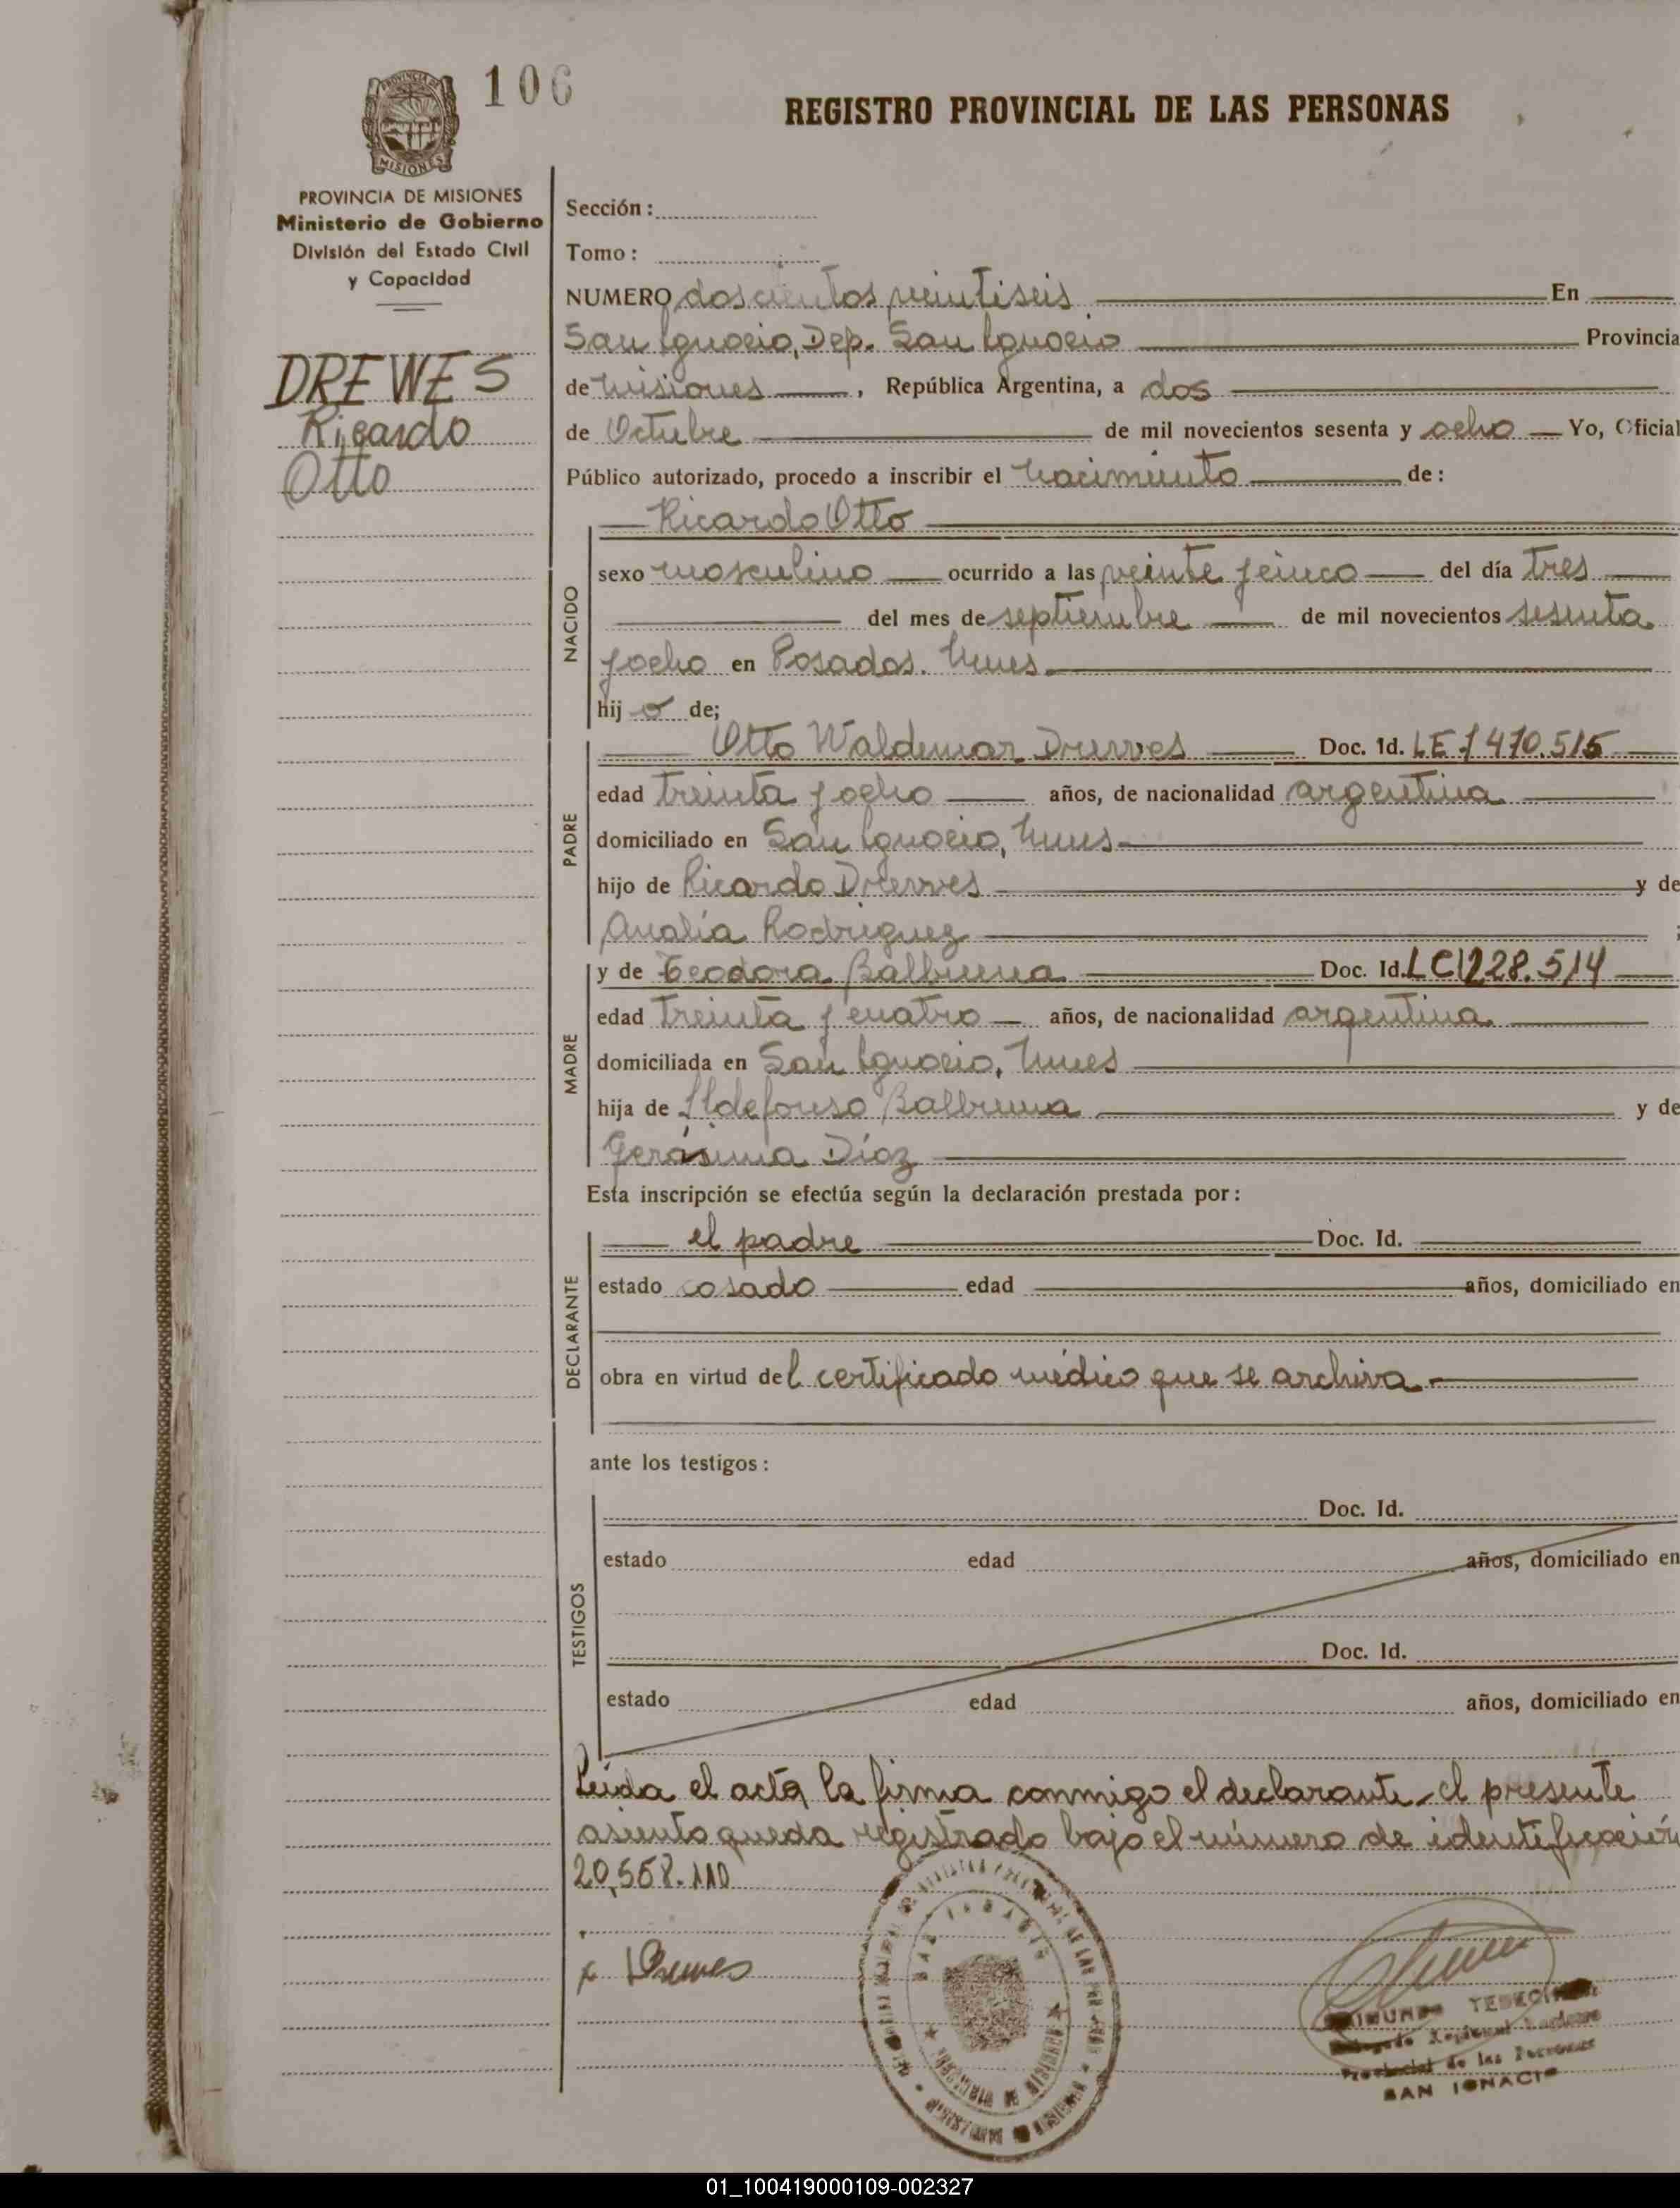 106
REGISTRO PROVINCIAL DE LAS PERSONAS
PROVINCIA DE MISIONES
MISIONES
PROVINCIA DE MISIONES
Ministerio de Gobierno
División del Estado Civil
y Capacidad
DREWES
Ricardo
Otto
Sección:
Tomo:
NUMERO doscientos veintiseis En
San Ignacio, Dep. San Ignacio Provincia
de Misiones, República Argentina, a dos
de Octubre de mil novecientos sesenta y ocho Yo, Oficial
Público autorizado, procedo a inscribir el nacimiento de:
NACIDO
Ricardo Otto
sexo masculino ocurrido a las veinte y cinco del día tres
del mes de septiembre de mil novecientos sesenta
y ocho en Posadas. Mnes.
hij o de;
PADRE
Otto Waldemar Drewes Doc. Id. LE 7470.515
edad treinta y ocho años, de nacionalidad argentina
domiciliado en San Ignacio, Mnes
hijo de Ricardo Drewes y de
Analía Rodriguez
MADRE
y de Teodora Balbuena Doc. Id. LC 1228.514
edad treinta y cuatro años, de nacionalidad argentina
domiciliada en San Ignacio, Mnes
hija de Ildefonso Balbuena y de
Gerásima Díaz
Esta inscripción se efectúa según la declaración prestada por:
DECLARANTE
el padre Doc. Id.
estado casado edad años, domiciliado en
obra en virtud del certificado médico que se archiva.-
ante los testigos:
TESTIGOS
Doc. Id.
estado edad años, domiciliado en
Doc. Id.
estado edad años, domiciliado en
Leida el acta la firma conmigo el declarante - el presente
asiento queda registrado bajo el número de identificación
20.558.110
x Drewes
SAN IGNACIO
Provincial de las Personas
SAN IGNACIO
01_100419000109-002327